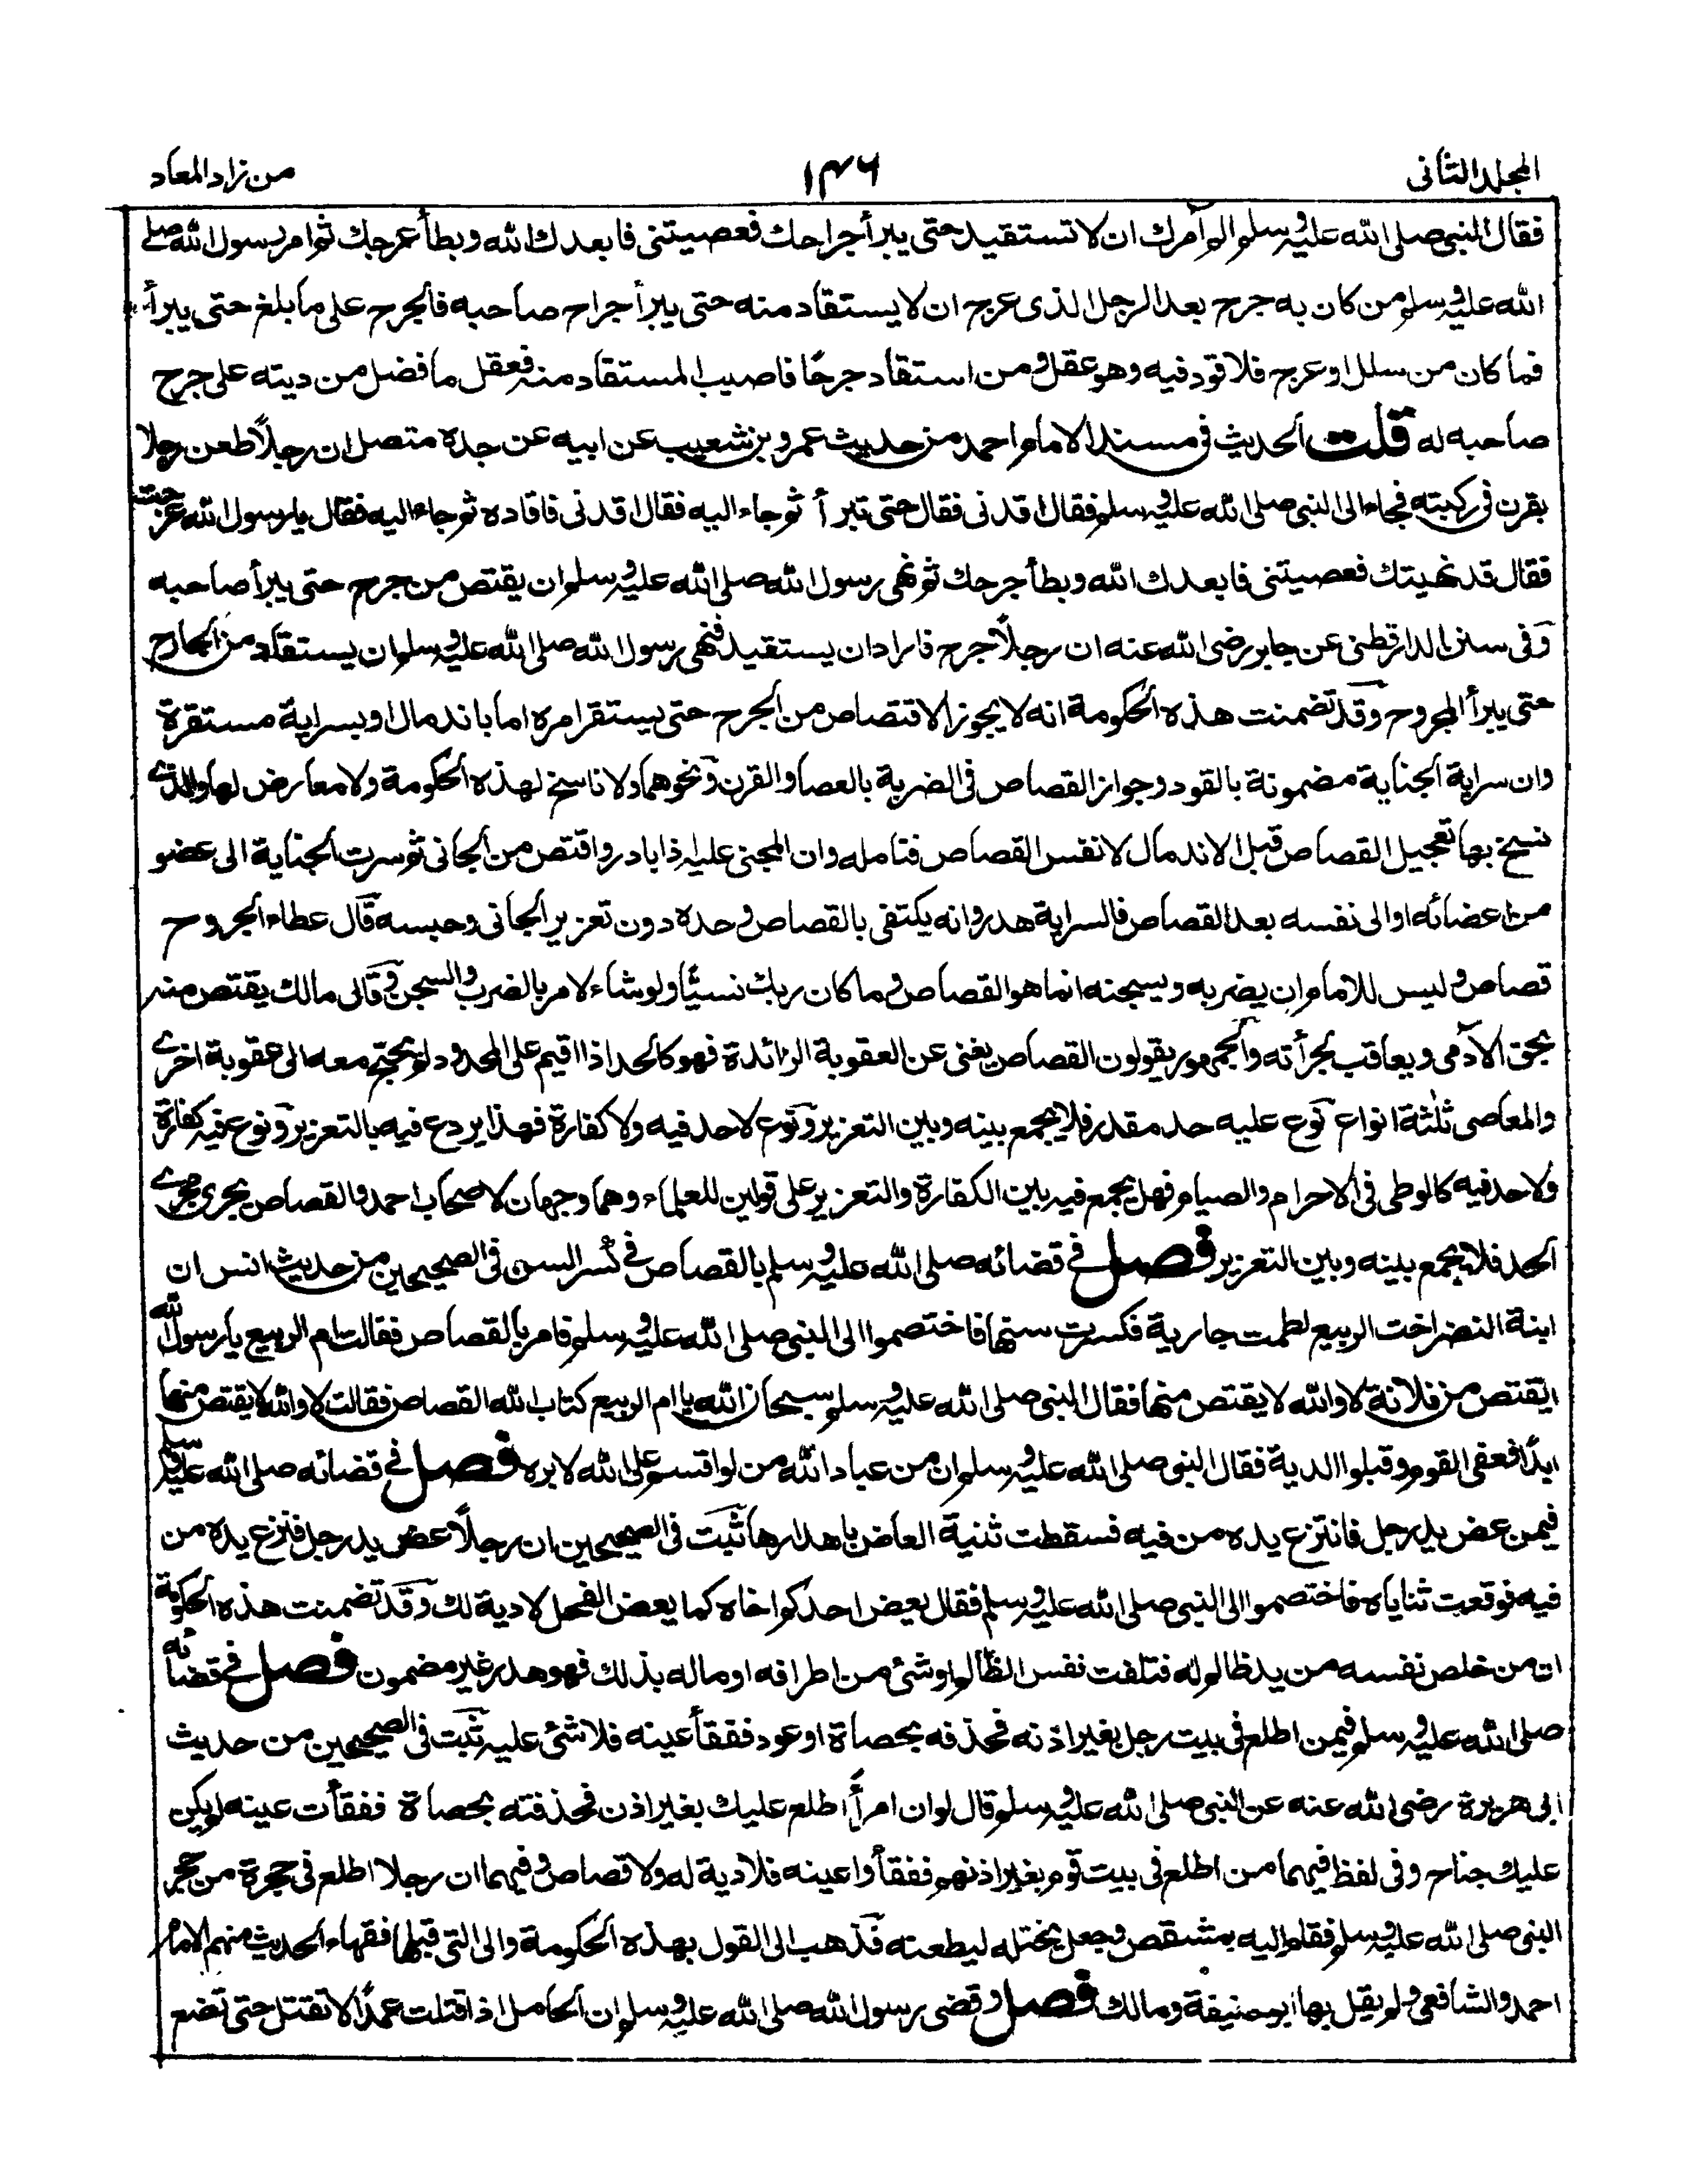 المجلد الثانى
١٤٦
من زاد المعاد
فقال النبي صلى الله عليه وسلم الم آمرك ان لا تستقيد حتى يبرأ جراحك فعصيتنى فابعدك الله وبطأ عرجك ثم امر رسول الله صلى
الله عليه وسلم من كان به جرح بعد الرجل الذى عرج ان لا يستقاد منه حتى يبرأ جراح صاحبه فالجرح على ما بلغ حتى يبرأ
فما كان من شلل او عرج فلا قود فيه وهو عقل ومن استقاد جرحًا فاصيب المستقاد منه فعقل ما فضل من ديته على جرح
صاحبه له قلت الحديث فى مسند الامام احمد من حديث عمرو بن شعيب عن ابيه عن جده متصل ان رجلًا طعن رجلا
بقرن فى ركبته فجاء الى النبى صلى الله عليه وسلم فقال اقدنى فقال حتى تبرأ ثم جاء اليه فقال اقدنى فاقاده ثم جاء اليه فقال يا رسول الله عرجت
فقال قد نهيتك فعصيتنى فابعدك الله وبطأ جرحك ثم نهى رسول الله صلى الله عليه وسلم ان يقتص من جرح حتى يبرأ صاحبه
وفى سنن الدارقطنى عن جابر رضى الله عنه ان رجلًا جرح فاراد ان يستقيد فنهى رسول الله صلى الله عليه وسلم ان يستقاد من الجارح
حتى يبرأ المجروح وقد تضمنت هذه الحكومة انه لا يجوز الاقتصاص من الجرح حتى يستقر امره اما باندمال او بسراية مستقرة
وان سراية الجناية مضمونة بالقود وجواز القصاص فى الضربة بالعصا والقرن ونحوهما ولا ناسخ لهذه الحكومة ولا معارض لها والذى
نسخ بها تعجيل القصاص قبل الاندمال لا نفس القصاص فتامله وان المجنى عليه اذا بادر واقتص من الجانى ثم سرت الجناية الى عضو
من اعضائه او الى نفسه بعد القصاص فالسراية هدر وانه يكتفى بالقصاص وحده دون تعزير الجانى وحبسه قال عطاء الجروح
قصاص وليس للامام ان يضربه ويسجنه انما هو القصاص وما كان ربك نسيًّا ولو شاء لامر بالضرب والسجن وقال مالك يقتص منه
بحق الآدمى ويعاقب بجرأته والجمهور يقولون القصاص يغنى عن العقوبة الزائدة فهو كالحد اذا اقيم على المحدود لم يحتج معه الى عقوبة اخرى
والمعاصى ثلثة انواع نوع عليه حد مقدر فلا يجمع بينه وبين التعزير ونوع لا حد فيه ولا كفارة فهذا يردع فيه بالتعزير ونوع فيه كفارة
ولا حد فيه كالوطى فى الاحرام والصيام فهل يجمع فيه بين الكفارة والتعزير على قولين للعلماء وهما وجهان لاصحاب احمد والقصاص يجرى مجرى
الحد فلا يجمع بينه وبين التعزير فصل فى قضائه صلى الله عليه وسلم بالقصاص فى كسر السن فى الصحيحين من حديث انس ان
ابنة النضر اخت الربيع لطمت جارية فكسرت سنها فاختصموا الى النبى صلى الله عليه وسلم فامر بالقصاص فقالت ام الربيع يا رسول الله
ايقتص من فلانة لا والله لا يقتص منها فقال النبى صلى الله عليه وسلم سبحان الله يا ام الربيع كتاب الله القصاص فقالت لا والله لا يقتص منها
ابدًا فعفى القوم وقبلوا الدية فقال النبى صلى الله عليه وسلم ان من عباد الله من لو اقسم على الله لابره فصل فى قضائه صلى الله عليه وسلم
فيمن عض يد رجل فانتزع يده من فيه فسقطت ثنية العاض باهدارها ثبت فى الصحيحين ان رجلًا عض يد رجل فنزع يده من
فيه فوقعت ثناياه فاختصموا الى النبى صلى الله عليه وسلم فقال يعض احدكم اخاه كما يعض الفحل لا دية لك وقد تضمنت هذه الحكومة
ان من خلص نفسه من يد ظالم له فتلفت نفس الظالم او شئ من اطرافه او ماله بذلك فهو هدر غير مضمون فصل فى قضائه
صلى الله عليه وسلم فيمن اطلع فى بيت رجل بغير اذنه فحذفه بحصاة او عود ففقأ عينه فلا شئ عليه ثبت فى الصحيحين من حديث
ابى هريرة رضى الله عنه عن النبى صلى الله عليه وسلم قال لو ان امرأ اطلع عليك بغير اذن فحذفته بحصاة ففقأت عينه لم يكن
عليك جناح وفى لفظ فيهما من اطلع فى بيت قوم بغير اذنهم ففقأوا عينه فلا دية له ولا قصاص وفيهما ان رجلا اطلع فى حجرة من حجر
النبى صلى الله عليه وسلم فقام اليه بمشقص وجعل يختله ليطعنه فذهب الى القول بهذه الحكومة والى التى قبلها فقهاء الحديث منهم الامام
احمد والشافعى ولم يقل بها ابو حنيفة ومالك فصل وقضى رسول الله صلى الله عليه وسلم ان الحامل اذا قتلت عمدًا لا تقتل حتى تضع